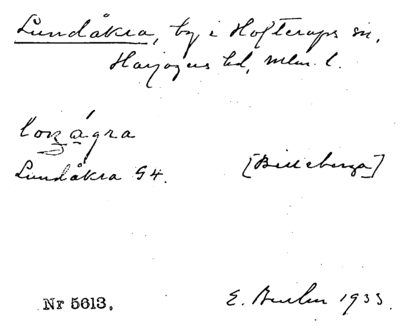 Lundåkra, by i Hofterups sn,
Harjagers hd, Mlm. l.
Lundåkra G4. [Billeberga]
Nr 5613. E. 1933